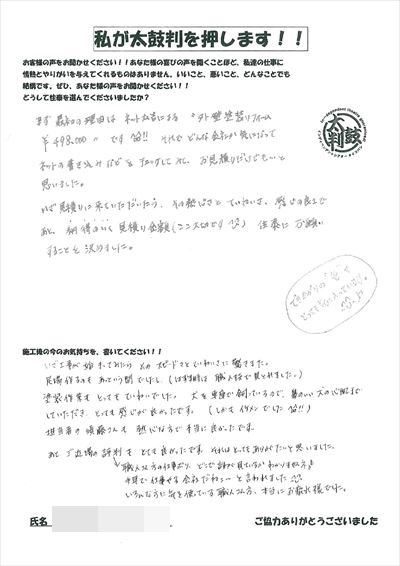 私が太鼓判を押します！！
お客様の声をお聞かせください！！あなた様の喜びの声を聞くことほど、私達の仕事に
情熱とやりがいを与えてくれるものはありません。いいこと、悪いこと、どんなことでも
結構です。ぜひ、あなた様の声をお聞かせください！！
どうして住泰を選んでくださいましたか？
太鼓判
まず最初の理由は ネット広告による "外壁塗装リフォーム
￥498,000" です 笑!! それで どんな会社か気になって
ネットの書き込みなどをチェックして、お見積りだけでもいいと
思いました。
いざ見積りに来ていただいたら、その 感じの良さで
あと、納得のいく見積り金額(ここ大切です) 住泰にお願い
することを決めました。
できあがりの色も
とっても気に入っています。
施工後の今のお気持ちを、書いてください！！
いざ工事が始まってみたら そのスピードさとていねいさに驚きました。
足場作るのもあっという間でしたし (は 職人技で見とれました。)
塗装作業もとってもていねいでした。 犬を 飼っているので、暑い 犬の心配まで
していただき、とっても感じが良かったです。(しかもイケメンでした 笑!!)
担当者の 須藤さんも 感じな方で本当に良かったです。
あと ご近所の評判も とても良かったです。それはとってもありがたいと思いました。
職人さん方の仕事ぶり、どこで誰が見ているかわかりませんネ
仕事する会社だネェーと言われました
いろんな方に気を使っている職人さん方、本当にお疲れ様でした。
氏名
ご協力ありがとうございました